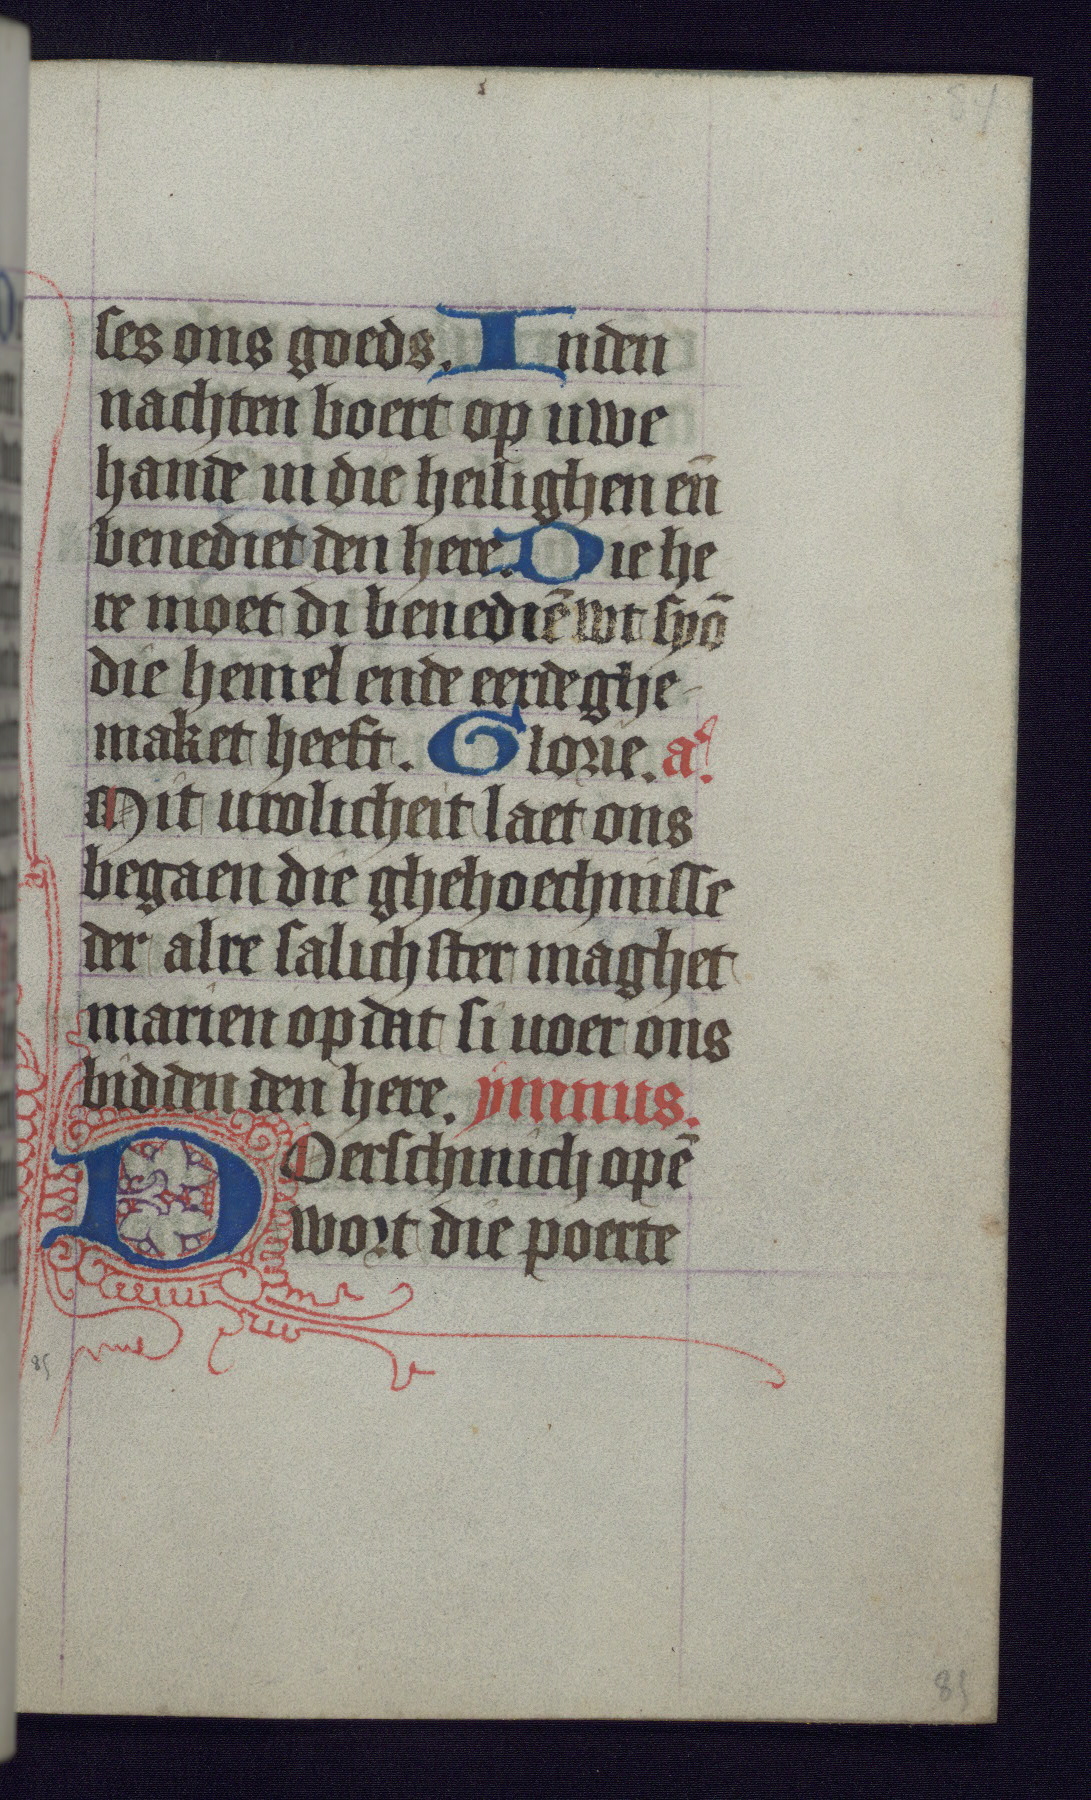 84
ses ons goeds. Inden
nachten boert op uwe
hande in die heilighen en̄
benediet den here. Die he
re moet di benediē wt syō
die hemel ende eerde ghe-
maket heeft. Glorie. a.
Mit urolicheit laet ons
begaen die ghehoechnisse
der alre salichster maghet
marien op dat si uoer ons
bidden den here. ymnus.
DOerschinich opē
wort die poerte
85
85